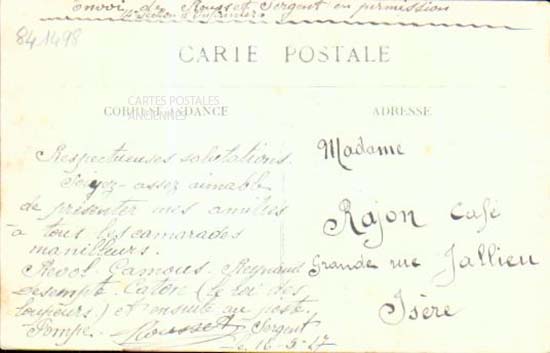 Envoi de Rousset Sergent en permission
section d'infirmiers
841498
CARTE POSTALE
CORRESPONDANCE
ADRESSE
CARTES POSTALES
ANCIENNES
Respectueuses salutations.
Soyez-assez aimable
de présenter mes amitiés
à tous les camarades
manilleurs.
Revol Gamous. Reynaud
Desempté. Caton (le roi des
loupeurs) et ensuite au poste
Pompe. Rousset Sergent
Le 16-5-17
Madame
Rajon Café
Grande rue Jallieu
Isère